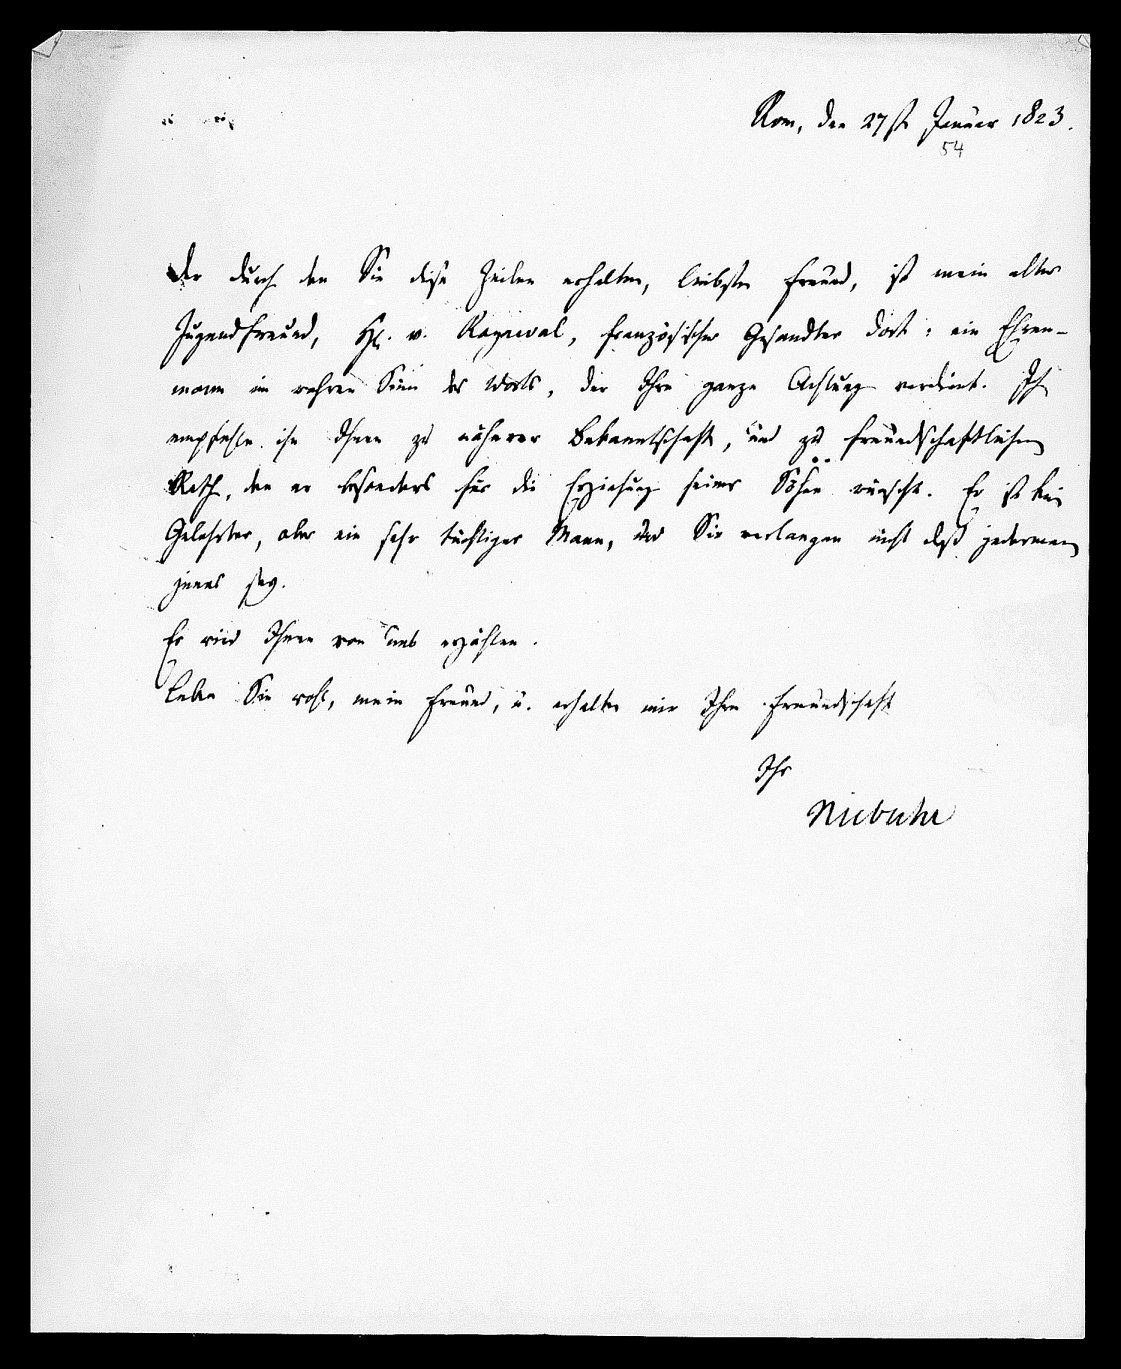 Rom, den 27st Januar 1823.
54
Der durch den Sie diese Zeilen erhalten, liebster Freund, ist mein alter
Jugendfreund, H. v. Rayneval, französischer Gesandter dort: ein Ehren-
mann im wahren Sinn des Worts, der Ihre ganze Achtung verdient. Ich
empfehle ihn Ihnen zu näherer Bekanntschaft, und zu freundschaftlichem
Rath, den er besonders für die Erziehung seiner Söhne wünscht. Er ist kein
Gelehrter, aber ein sehr tüchtiger Mann, und Sie verlangen nicht daß jedermann
jenes sey.
Er wird Ihnen von uns erzählen.
Leben Sie wohl, mein Freund, u. erhalten mir Ihre Freundschaft
Ihr
Niebuhr